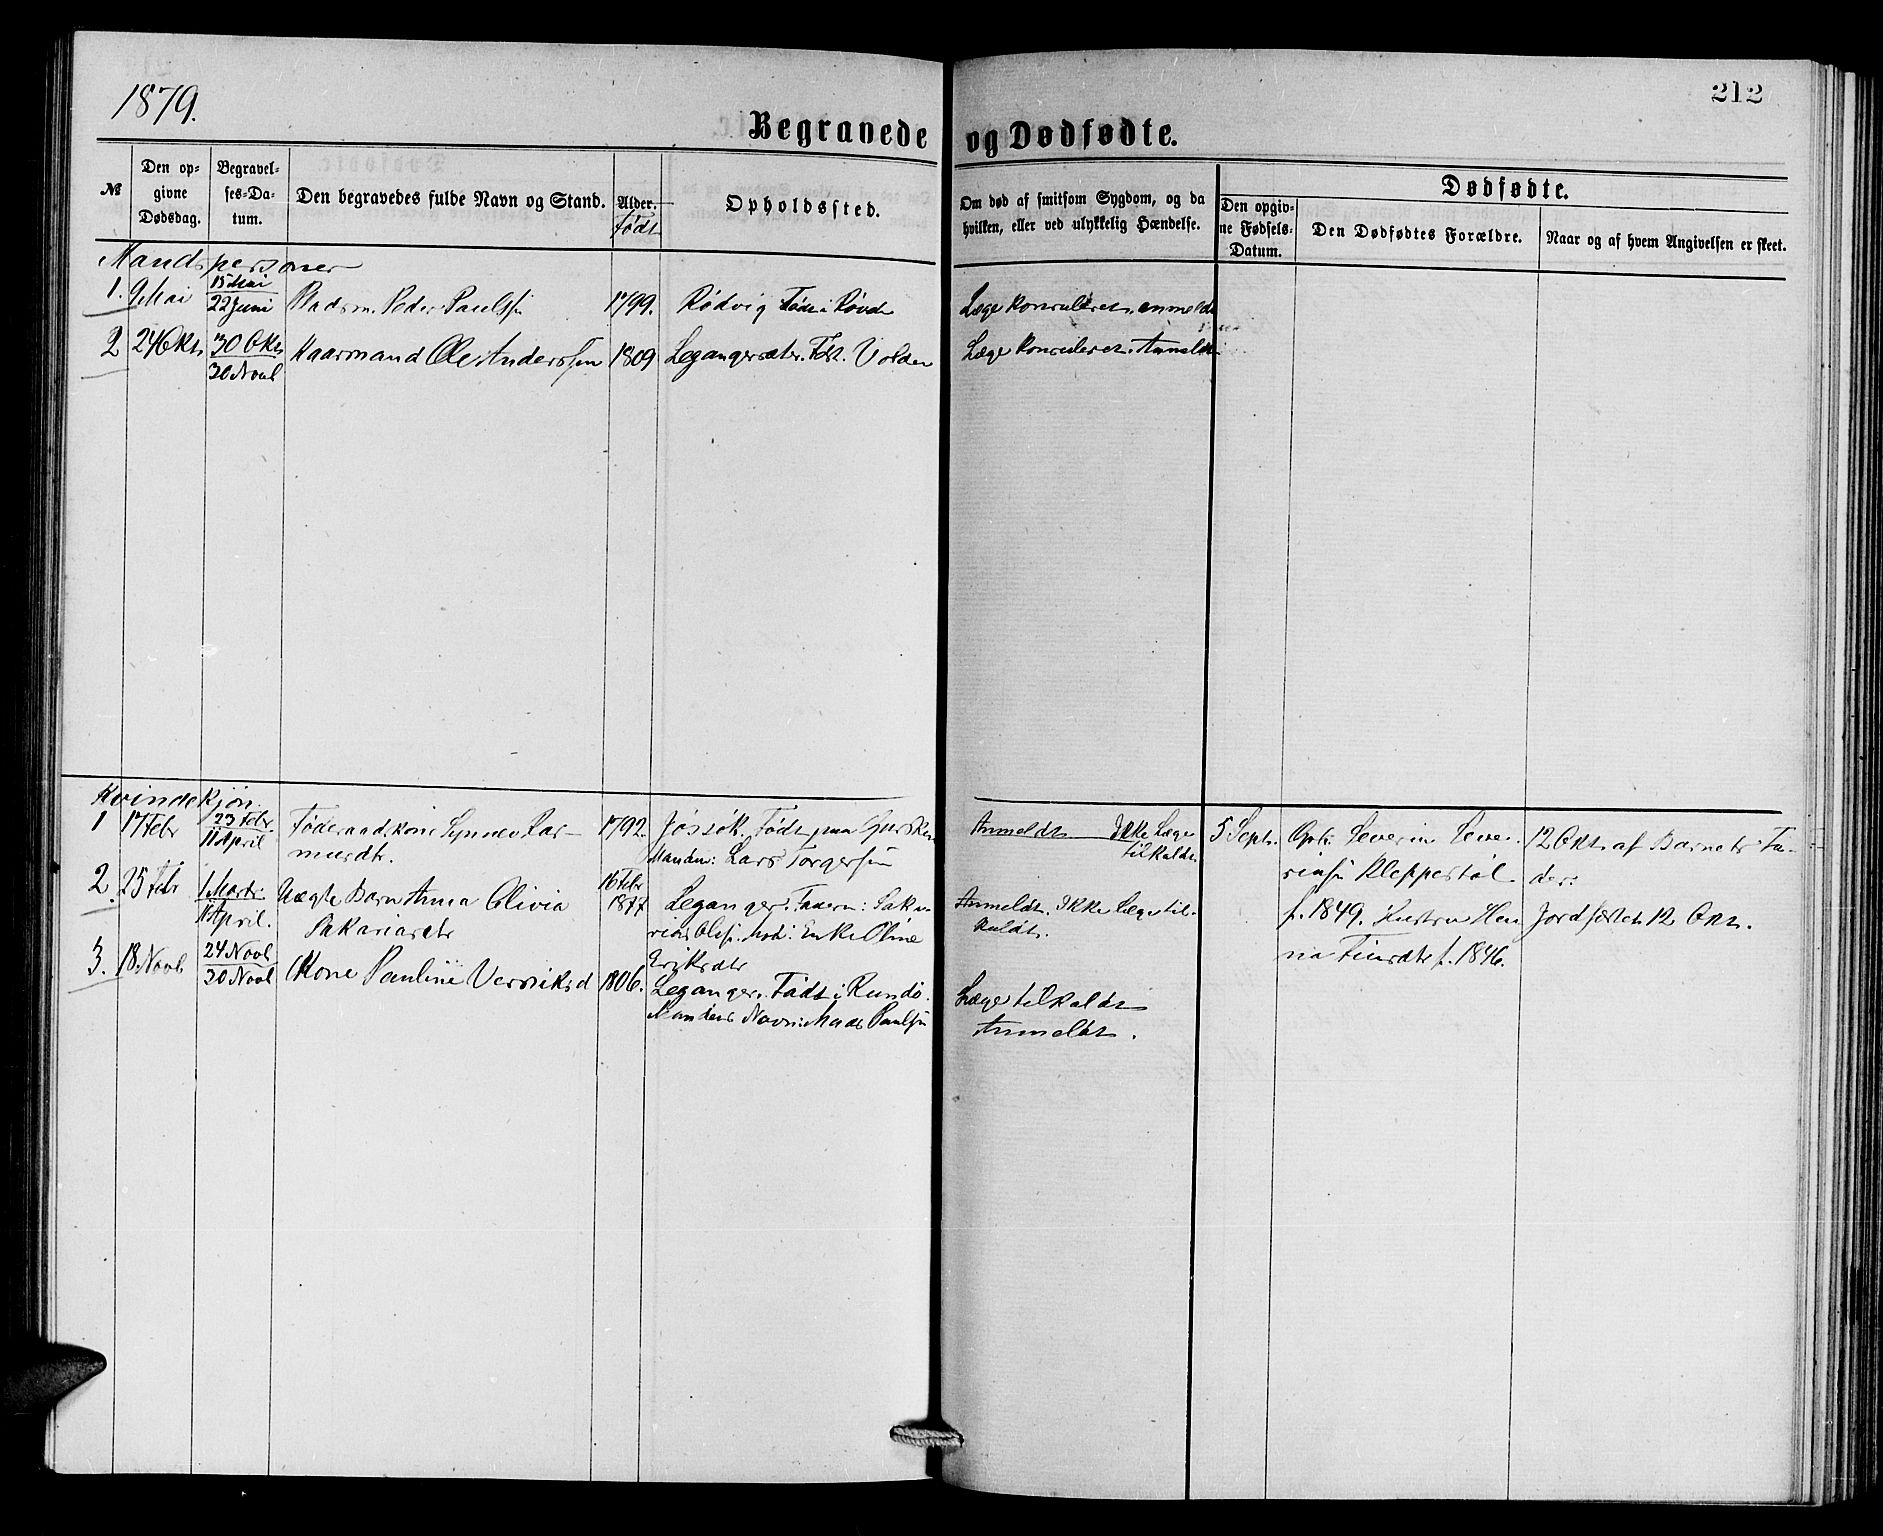 1879.
212
Begravede og Dødfødte.
№
Den op-
givne
Dødsdag.
Begravel-
ses-Da-
tum.
Den begravedes fulde Navn og Stand.
Alder.
Født
Opholdssted.
Om død af smitsom Sygdom, og da
hvilken, eller ved ulykkelig Hændelse.
Dødfødte.
Den opgiv-
ne Fødsels-
Datum.
Den Dødfødtes Forældre.
Naar og af hvem Angivelsen er skeet.
Mandspersoner
1. 9 Mai 15 Mai
22 Juni
Peder Paulsn 1799. Rødvig Født i Røvde Læge konsuleret. anmeldt
2 24 Okt. 30 Okt
30 Novb
Kaarmand Ole Anderssen 1809 Legangersæter. Født. Volden Læge konsuleret. Anmeldt
Kvindekjøn.
1 17 Febr 23 Febr.
11 April
Føderaadskone Synnev Ras-
musdtr.
1792. Jøssok. Født paa Gursken
Manden: Lars Torgersen
Anmeldt Ikke Læge
tilkaldt.
5 Sept. Severin Seve-
rinsn Kleppestøl
f. 1849. Hustru Han
na f. 1846.
12 Okt. af Barnets Fa-
der:
Jordfæstet 12 Okt.
2. 25 Febr 1 Marts
11 April.
Uægte Barn Anna Olivia
Sakariasdtr
16 Febr
1877
Leganger. Faderen: Saka-
rias Olsn. Mod: Enke Oline
Eriksdtr
Anmeldt. Ikke Læge til-
kaldt.
3. 18. Novb 24 Novb
30 Novb
Kone Pauline Verniksd 1806. Leganger. Født i Rundø.
Mandens Navn: Mads Paulsn
Læge tilkaldt
Anmeldt.